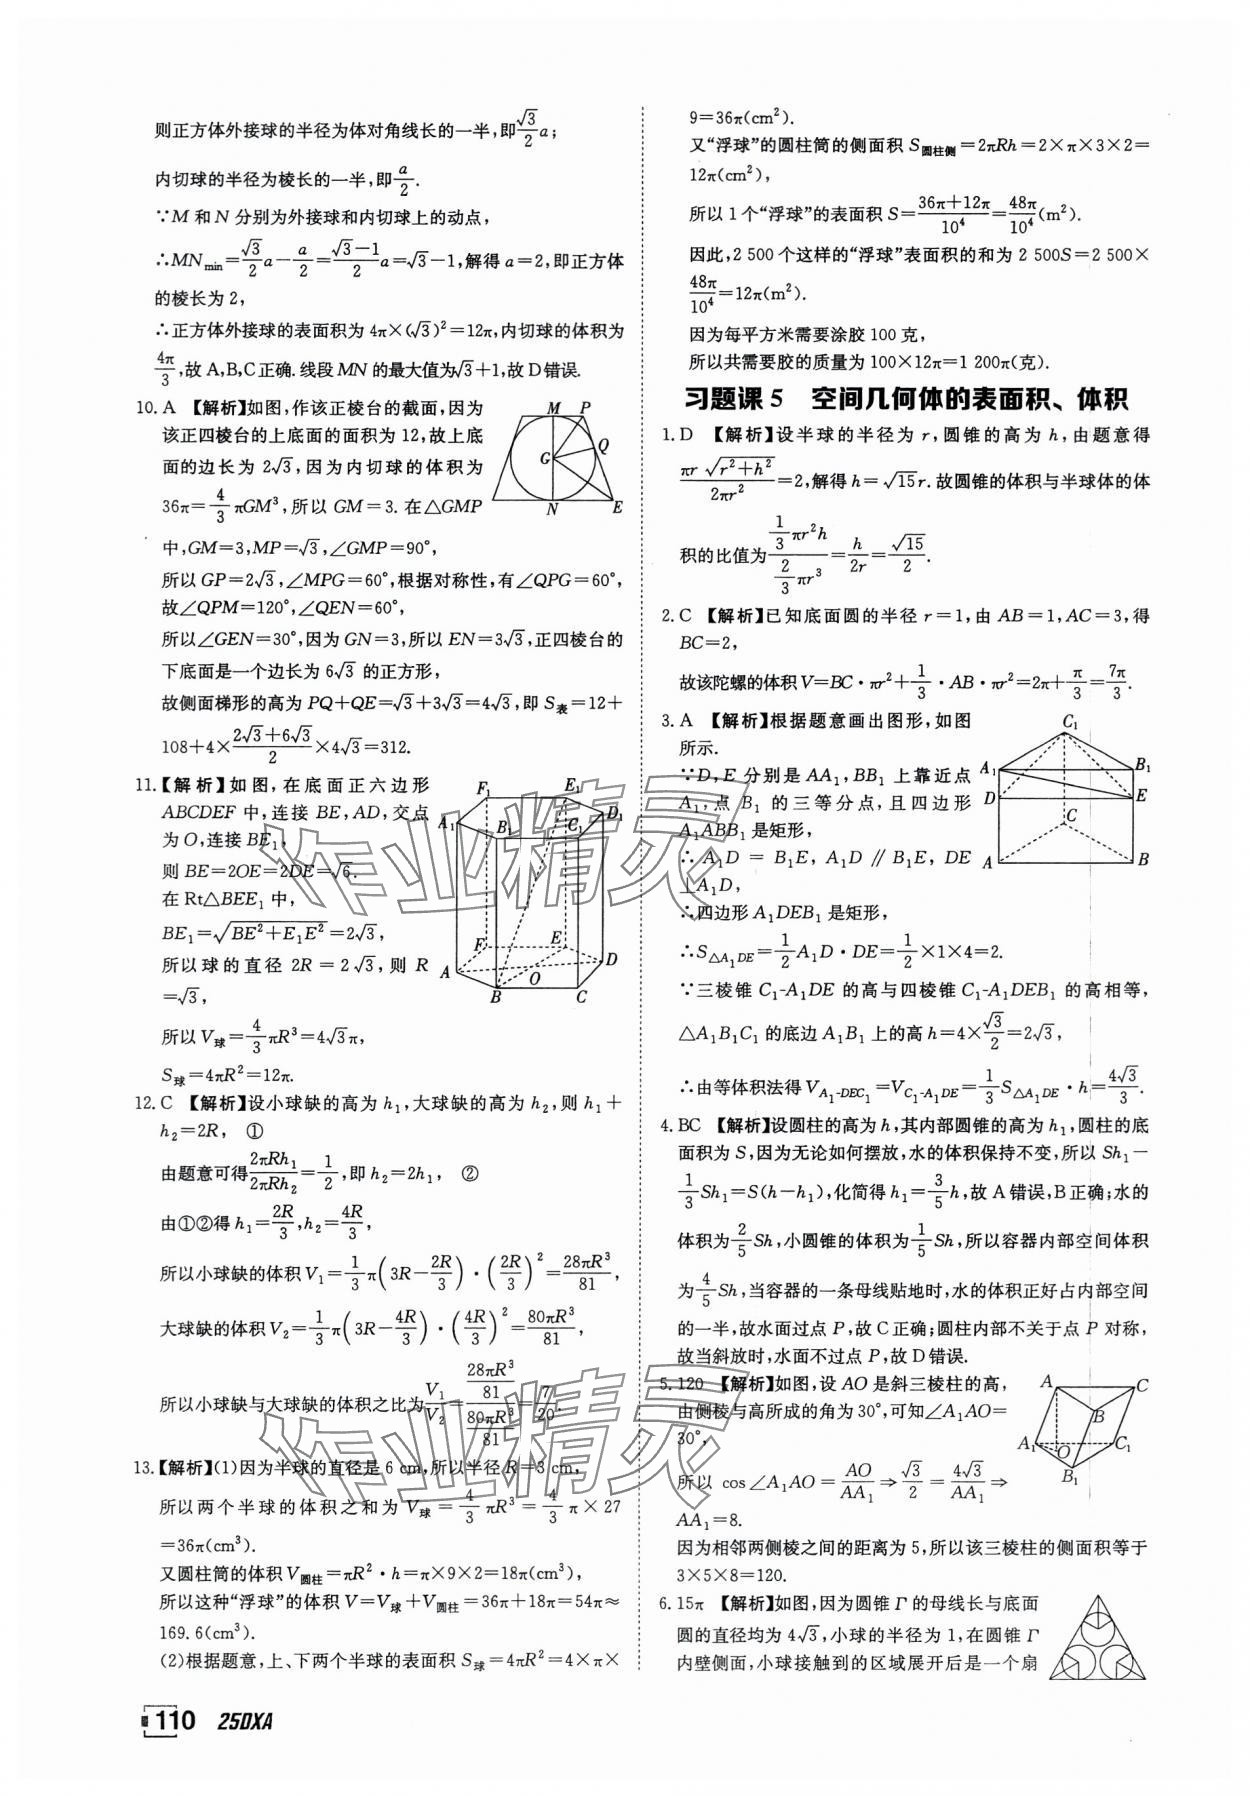 则正方体外接球的半径为体对角线长的一半,即√3/2 a;
内切球的半径为棱长的一半,即a/2.
∵M 和 N 分别为外接球和内切球上的动点,
∴MNmin=√3/2 a−a/2=(√3−1)/2 a=√3−1,解得 a=2,即正方体
的棱长为 2,
∴正方体外接球的表面积为 4π×(√3)²=12π,内切球的体积为
4π/3,故 A,B,C 正确.线段 MN 的最大值为√3+1,故 D 错误.
10. A 【解析】如图,作该正棱台的截面,因为
该正四棱台的上底面的面积为 12,故上底
面的边长为 2√3,因为内切球的体积为
36π=4/3 πGM³,所以 GM=3.在△GMP
中,GM=3,MP=√3,∠GMP=90°,
所以 GP=2√3,∠MPG=60°,根据对称性,有∠QPG=60°,
故∠QPM=120°,∠QEN=60°,
所以∠GEN=30°,因为 GN=3,所以 EN=3√3,正四棱台的
下底面是一个边长为 6√3 的正方形,
故侧面梯形的高为 PQ+QE=√3+3√3=4√3,即 S表=12+
108+4×(2√3+6√3)/2×4√3=312.
M P
G Q
N E
11.【解析】如图,在底面正六边形
ABCDEF 中,连接 BE,AD,交点
为 O,连接 BE₁,
则 BE=2OE=2DE=√6.
在 Rt△BEE₁ 中,
BE₁=√(BE²+E₁E²)=2√3,
所以球的直径 2R=2√3,则 R
=√3,
所以 V球=4/3 πR³=4√3π,
S球=4πR²=12π.
F₁ E₁
A₁ B₁ C₁ D₁
F E
A O D
B C
12. C 【解析】设小球缺的高为 h₁,大球缺的高为 h₂,则 h₁+
h₂=2R, ①
由题意可得2πRh₁/2πRh₂=1/2,即 h₂=2h₁, ②
由①②得 h₁=2R/3,h₂=4R/3,
所以小球缺的体积 V₁=1/3 π(3R−2R/3)·(2R/3)²=28πR³/81,
大球缺的体积 V₂=1/3 π(3R−4R/3)·(4R/3)²=80πR³/81,
所以小球缺与大球缺的体积之比为V₁/V₂=(28πR³/81)/(80πR³/81)=7/20.
13.【解析】(1)因为半球的直径是 6 cm,所以半径 R=3 cm,
所以两个半球的体积之和为 V球=4/3 πR³=4/3 π×27
=36π(cm³).
又圆柱筒的体积 V圆柱=πR²·h=π×9×2=18π(cm³),
所以这种“浮球”的体积 V=V球+V圆柱=36π+18π=54π≈
169.6(cm³).
(2)根据题意,上、下两个半球的表面积 S球=4πR²=4×π×
9=36π(cm²).
又“浮球”的圆柱筒的侧面积 S圆柱侧=2πRh=2×π×3×2=
12π(cm²),
所以 1 个“浮球”的表面积 S=(36π+12π)/10⁴=48π/10⁴(m²).
因此,2 500 个这样的“浮球”表面积的和为 2 500S=2 500×
48π/10⁴=12π(m²).
因为每平方米需要涂胶 100 克,
所以共需要胶的质量为 100×12π=1 200π(克).
习题课 5 空间几何体的表面积、体积
1. D 【解析】设半球的半径为 r,圆锥的高为 h,由题意得
πr√(r²+h²)/2πr²=2,解得 h=√15r.故圆锥的体积与半球体的体
积的比值为(1/3 πr²h)/(2/3 πr³)=h/2r=√15/2.
2. C 【解析】已知底面圆的半径 r=1,由 AB=1,AC=3,得
BC=2,
故该陀螺的体积 V=BC·πr²+1/3·AB·πr²=2π+π/3=7π/3.
3. A 【解析】根据题意画出图形,如图
所示.
∵D,E 分别是 AA₁,BB₁ 上靠近点
A₁,点 B₁ 的三等分点,且四边形
A₁ABB₁ 是矩形,
∴A₁D=B₁E,A₁D∥B₁E,DE
⊥A₁D,
∴四边形 A₁DEB₁ 是矩形,
∴S△A₁DE=1/2 A₁D·DE=1/2×1×4=2.
∵三棱锥 C₁-A₁DE 的高与四棱锥 C₁-A₁DEB₁ 的高相等,
△A₁B₁C₁ 的底边 A₁B₁ 上的高 h=4×√3/2=2√3,
∴由等体积法得 V A₁-DEC₁=V C₁-A₁DE=1/3 S△A₁DE·h=4√3/3.
C₁
A₁ B₁
D E
C
A B
4. BC 【解析】设圆柱的高为 h,其内部圆锥的高为 h₁,圆柱的底
面积为 S,因为无论如何摆放,水的体积保持不变,所以 Sh₁−
1/3 Sh₁=S(h−h₁),化简得 h₁=3/5 h,故 A 错误,B 正确;水的
体积为2/5 Sh,小圆锥的体积为1/5 Sh,所以容器内部空间体积
为4/5 Sh,当容器的一条母线贴地时,水的体积正好占内部空间
的一半,故水面过点 P,故 C 正确;圆柱内部不关于点 P 对称,
故当斜放时,水面不过点 P,故 D 错误.
5. 120 【解析】如图,设 AO 是斜三棱柱的高,
由侧棱与高所成的角为 30°,可知∠A₁AO=
30°,
所以 cos∠A₁AO=AO/AA₁⇒√3/2=4√3/AA₁⇒
AA₁=8.
因为相邻两侧棱之间的距离为 5,所以该三棱柱的侧面积等于
3×5×8=120.
A C
B
A₁ O C₁
B₁
6. 15π 【解析】如图,因为圆锥 Γ 的母线长与底面
圆的直径均为 4√3,小球的半径为 1,在圆锥 Γ
内壁侧面,小球接触到的区域展开后是一个扇
作业精灵
作业精灵
110 25DXA